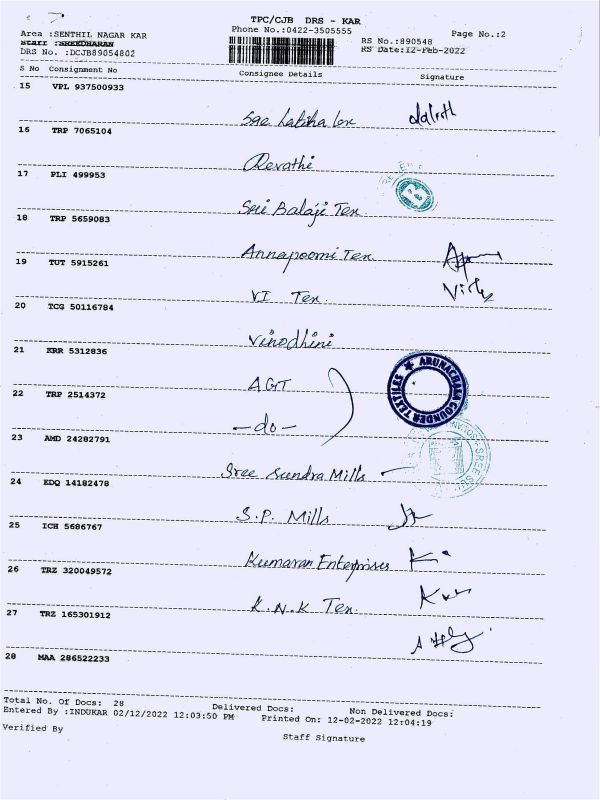 TPC/CJB DRS - KAR
Area :SENTHIL NAGAR KAR
Phone No.:0422-3505555
RS No.:890548
Page No.:2
Staff :SREEDHARAN
DRS No. :DCJB89054802
RS Date:12-Feb-2022
S No Consignment No Consignee Details Signature
15 VPL 937500933
16 TRP 7065104
Revathi
17 PLI 499953
Sri Balaji Tex
18 TRP 5659083
Annapoorni Tex
19 TUT 5915261
VI Tex.
20 TCG 50116784
Vinodhini
21 KRR 5312836
AGT
ARUNACHALA GOUNDER TEXTILES
22 TRP 2514372
-do-
23 AMD 24282791
Sree Sundra Mills
24 EDQ 14182478
S.P. Mills
25 ICH 5686767
Kumaran Enterprises
26 TRZ 320049572
K.N.K Tex.
27 TRZ 165301912
28 MAA 286522233
Total No. Of Docs: 28 Delivered Docs: Non Delivered Docs:
Entered By :INDUKAR 02/12/2022 12:03:50 PM Printed On: 12-02-2022 12:04:19
Verified By
Staff Signature